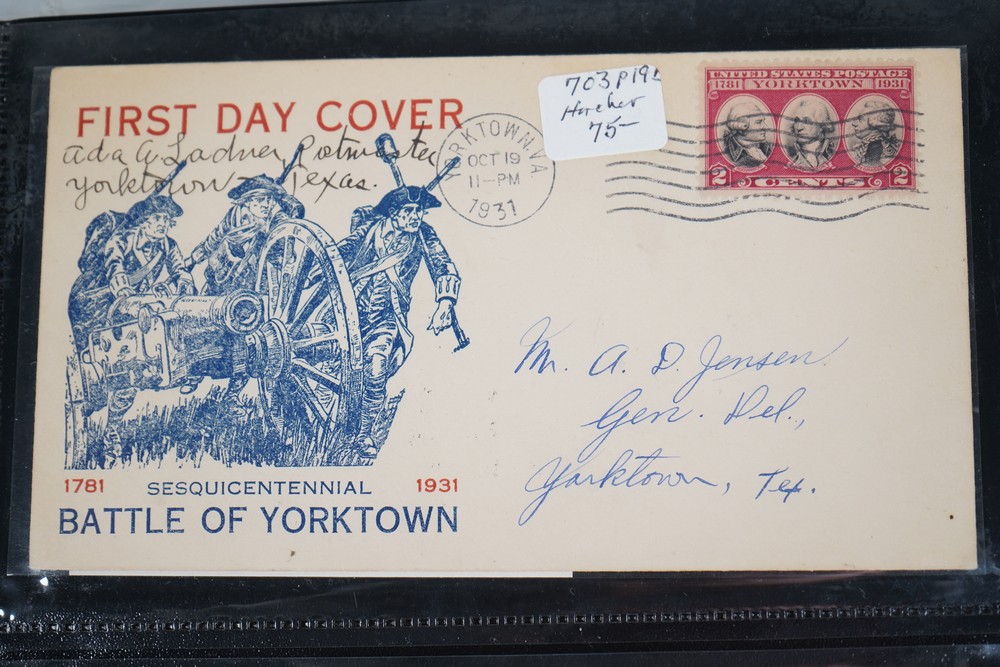 FIRST DAY COVER
Ada A. Ladner Potmaster
Yorktown - Texas.
YORKTOWN, VA
OCT 19
11-PM
1931
703 P19
75-
UNITED STATES POSTAGE
1781 YORKTOWN 1931
2 CENTS 2
Mr. A. D. Jensen
Gen. Del.,
Yorktown, Tex.
1781 SESQUICENTENNIAL 1931
BATTLE OF YORKTOWN